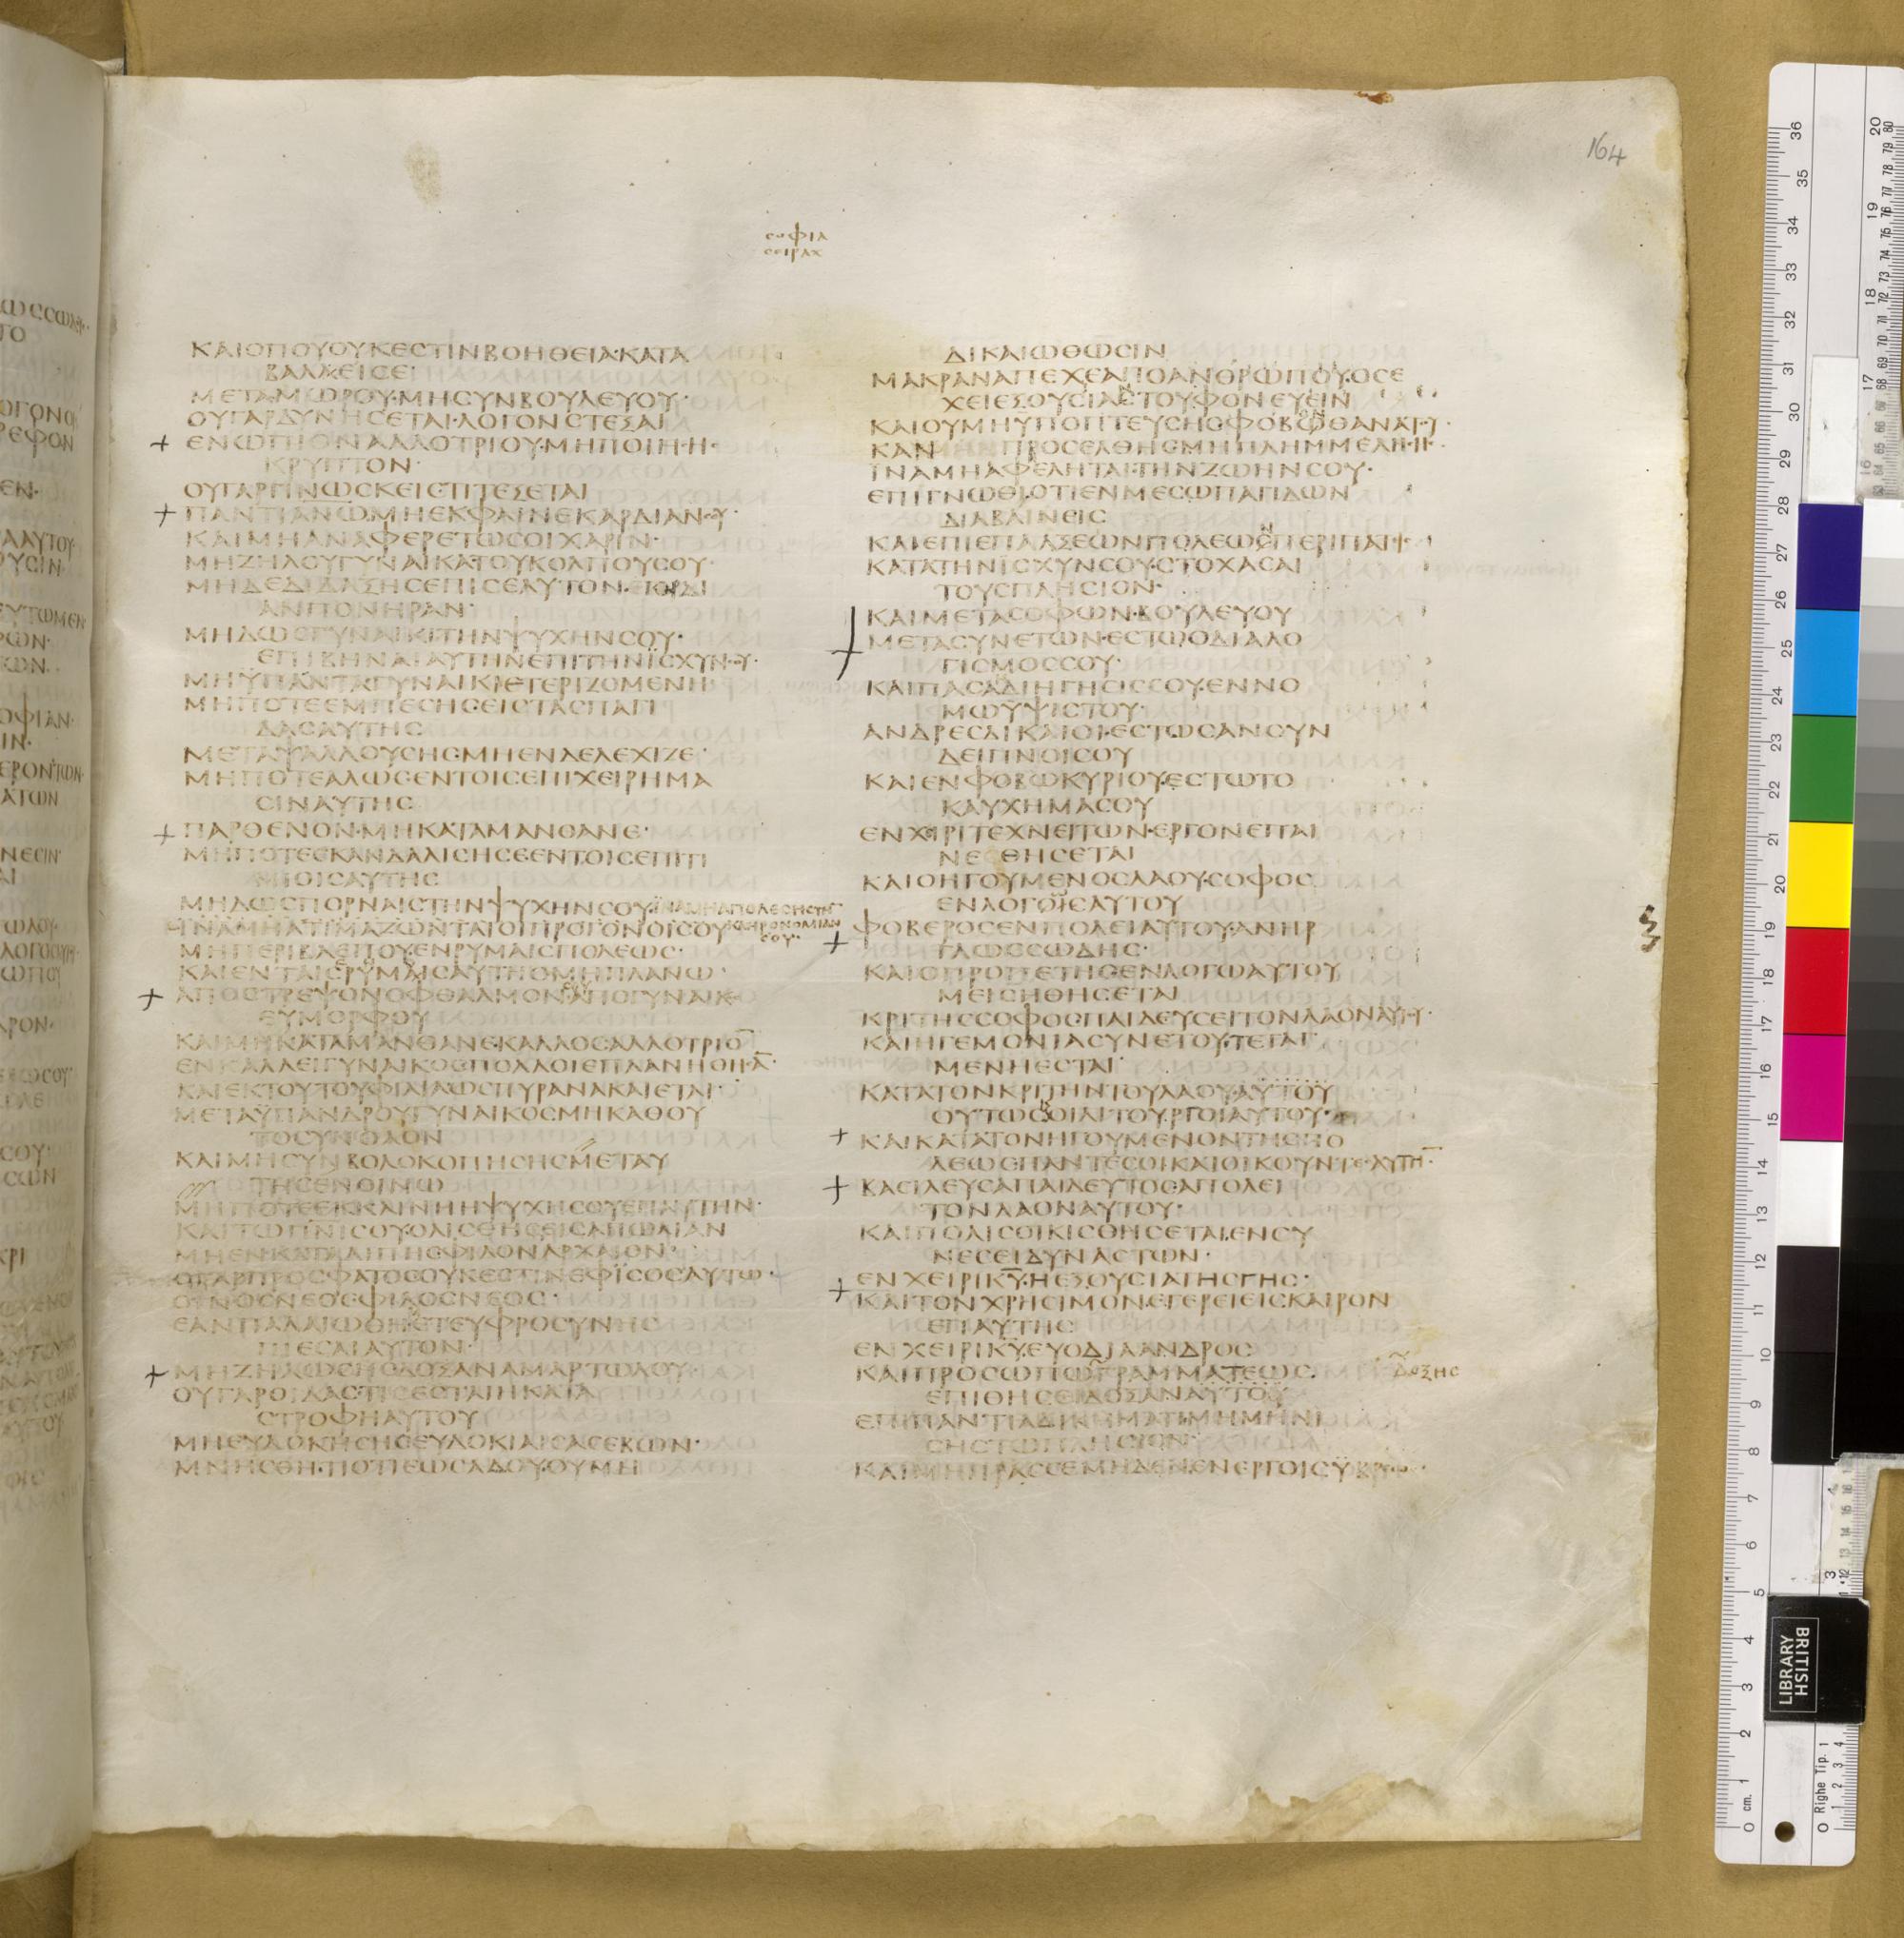 164
ϲοφια
ϲειραχ
ΚΑΙΟΠΟΥΟΥΚΕϹΤΙΝΒΟΗΘΕΙΑ·ΚΑΤΑ
ΒΑΛΕΙϹΕ·
ΜΕΤΑΜΩΡΟΥ·ΜΗϹΥΝΒΟΥΛΕΥΟΥ·
ΟΥΓΑΡΔΥΝΗϹΕΤΑΙ·ΛΟΓΟΝϹΤΕΞΑΙ
ΕΝΩΠΙΟΝΑΛΛΟΤΡΙΟΥ·ΜΗΠΟΙΗϹΗϹ
ΚΡΥΠΤΟΝ·
ΟΥΓΑΡΓΙΝΩϹΚΕΙϹΤΙΤΕΞΕΤΑΙ
ΠΑΝΤΙΑΝΩ·ΜΗΕΚΦΑΙΝΕΚΑΡΔΙΑΝϹΟΥ·
ΚΑΙΜΗΑΝΑΦΕΡΕΤΩϹΟΙΧΑΡΙΝ·
ΜΗΖΗΛΟΥΓΥΝΑΙΚΑΤΟΥΚΟΛΠΟΥϹΟΥ·
ΜΗΔΕΔΙΔΑΞΗϹΕΠΙϹΕΑΥΤΟΝ·ΠΑΙΔΙ
ΑΝΠΟΝΗΡΑΝ·
ΜΗΔΩϹΓΥΝΑΙΚΙΤΗΝΨΥΧΗΝϹΟΥ·
ΕΠΙΒΗΝΑΙΑΥΤΗΝΕΠΙΤΗΝΪϹΧΥΝϹΟΥ·
ΜΗΫΠΑΝΤΑΓΥΝΑΙΚΙΕΤΕΡΙΖΟΜΕΝΗ·
ΜΗΠΟΤΕΕΜΠΕϹΗϹΕΙϹΤΑϹΠΑΓΙ
ΔΑϹΑΥΤΗϹ
ΜΕΤΑΨΑΛΛΟΥϹΗϹ·ΜΗΕΝΔΕΛΕΧΙΖΕ·
ΜΗΠΟΤΕΑΛΩϹΕΝΤΟΙϹΕΠΙΧΕΙΡΗΜΑ
ϹΙΝΑΥΤΗϹ
ΠΑΡΘΕΝΟΝ·ΜΗΚΑΤΑΜΑΝΘΑΝΕ·
ΜΗΠΟΤΕϹΚΑΝΔΑΛΙϹΗϹΕΝΤΟΙϹΕΠΙΤΙ
ΜΙΟΙϹΑΥΤΗϹ
ΜΗΔΩϹΠΟΡΝΑΙϹΤΗΝΨΥΧΗΝϹΟΥ·ΪΝΑΜΗΑΠΟΛΕϹΗϹΤΗΝ
ΪΝΑΜΗΑΤΙΜΑΖΩΝΤΑΙΟΙΠΡΟΓΟΝΟΙϹΟΥ ΚΛΗΡΟΝΟΜΙΑΝ
ϹΟΥ·
ΜΗΠΕΡΙΒΛΕΠΟΥ·ΕΝΡΥΜΑΙϹΠΟΛΕΩϹ·
ΚΑΙΕΝΤΑΙϹΡΥΜΑΙϹΑΥΤΗϹΜΗΠΛΑΝΩ·
ΑΠΟϹΤΡΕΨΟΝΟΦΘΑΛΜΟΝϹΟΥΑΠΟΓΥΝΑΙΚΟϹ
ΕΥΜΟΡΦΟΥ
ΚΑΙΜΗΚΑΤΑΜΑΝΘΑΝΕ·ΚΑΛΛΟϹΑΛΛΟΤΡΙΟ̅
ΕΝΚΑΛΛΕΙΓΥΝΑΙΚΟϹΠΟΛΛΟΙΕΠΛΑΝΗΘΗϹΑ̅·
ΚΑΙΕΚΤΟΥΤΟΥΦΙΛΙΑΩϹΠΥΡΑΝΑΚΑΙΕΤΑΙ·
ΜΕΤΑΫΠΑΝΔΡΟΥΓΥΝΑΙΚΟϹ·ΜΗΚΑΘΟΥ
ΤΟϹΥΝΟΛΟΝ
ΚΑΙΜΗϹΥΝΒΟΛΟΚΟΠΗϹΗϹΜΕΤΑΥ
ΤΗϹΕΝΟΙΝΩ
ΜΗΠΟΤΕΕΚΚΛΙΝΗΗΨΥΧΗϹΟΥΕΠΑΥΤΗΝ·
ΚΑΙΤΩΠΝΙϹΟΥΟΛΙϹΘΗϹΕΙϹΑΠΩΛΙΑΝ
ΜΗΕΝΚΑΤΑΛΙΠΗϹΦΙΛΟΝΑΡΧΑΙΟΝ·
ΟΓΑΡΠΡΟϹΦΑΤΟϹΟΥΚΕϹΤΙΝΕΦΪϹΟϹΑΥΤΩ·
ΟΙΝΟϹΝΕΟϹΦΙΛΟϹΝΕΟϹ·
ΕΑΝΠΑΛΑΙΩΘΗΜΕΤΕΥΦΡΟϹΥΝΗϹ
ΠΙΕϹΑΙΑΥΤΟΝ·
ΜΗΖΗΛΩϹΗϹΔΟΞΑΝΑΜΑΡΤΩΛΟΥ·
ΟΥΓΑΡΟΙΔΑϹΤΙΕϹΤΑΙΗΚΑΤΑ
ϹΤΡΟΦΗΑΥΤΟΥ
ΜΗΕΥΔΟΚΗϹΗϹΕΥΔΟΚΙΑΙϹΑϹΕΒΩΝ·
ΜΝΗϹΘΗΤΙΟΤΙΕΩϹΑΔΟΥ·ΟΥΜΗ
ΔΙΚΑΙΩΘΩϹΙΝ
ΜΑΚΡΑΝΑΠΕΧΕΑΠΟΑΝΘΡΩΠΟΥ·ΟϹΕ
ΧΕΙΕΞΟΥϹΙΑΝΤΟΥΦΟΝΕΥΕΙΝ
ΚΑΙΟΥΜΗΥΠΟΠΤΕΥϹΗϹΦΟΒΟΝΘΑΝΑΤΟΥ·
ΚΑΝΠΡΟϹΕΛΘΗϹΜΗΠΛΗΜΜΕΛΗϹΗϹ·
ΪΝΑΜΗΑΦΕΛΗΤΑΙΤΗΝΖΩΗΝϹΟΥ·
ΕΠΙΓΝΩΘΙΟΤΙΕΝΜΕϹΩΠΑΓΙΔΩΝ
ΔΙΑΒΑΙΝΕΙϹ
ΚΑΙΕΠΙΕΠΑΛΞΕΩΝΠΟΛΕΩΝΠΕΡΙΠΑΤΙϹ·
ΚΑΤΑΤΗΝΙϹΧΥΝϹΟΥ·ϹΤΟΧΑϹΑΙ
ΤΟΥϹΠΛΗϹΙΟΝ·
ΚΑΙΜΕΤΑϹΟΦΩΝ·ΒΟΥΛΕΥΟΥ
ΜΕΤΑϹΥΝΕΤΩΝ·ΕϹΤΩΟΔΙΑΛΟ
ΓΙϹΜΟϹϹΟΥ·
ΚΑΙΠΑϹΑΔΙΗΓΗϹΙϹϹΟΥ·ΕΝΝΟ
ΜΩΫΨΙϹΤΟΥ·
ΑΝΔΡΕϹΔΙΚΑΙΟΙ·ΕϹΤΩϹΑΝϹΥΝ
ΔΕΙΠΝΟΙϹΟΥ
ΚΑΙΕΝΦΟΒΩΚΥΡΙΟΥ·ΕϹΤΩΤΟ
ΚΑΥΧΗΜΑϹΟΥ
ΕΝΧΕΙΡΙΤΕΧΝΕΙΤΩΝ·ΕΡΓΟΝΕΠΑΙ
ΝΕϹΘΗϹΕΤΑΙ
ΚΑΙΟΗΓΟΥΜΕΝΟϹΛΑΟΥ·ϹΟΦΟϹ
ΕΝΛΟΓΟΙϹΑΥΤΟΥ
ΦΟΒΕΡΟϹΕΝΠΟΛΕΙΑΥΤΟΥ·ΑΝΗΡ
ΓΛΩϹϹΩΔΗϹ·
ΚΑΙΟΠΡΟΠΕΤΗϹΕΝΛΟΓΩΑΥΤΟΥ
ΜΕΙϹΗΘΗϹΕΤΑΙ
ΚΡΙΤΗϹϹΟΦΟϹΠΑΙΔΕΥϹΕΙΤΟΝΛΑΟΝΑΥΤΟΥ·
ΚΑΙΗΓΕΜΟΝΙΑϹΥΝΕΤΟΥ·ΤΕΤΑΓ
ΜΕΝΗΕϹΤΑΙ
ΚΑΤΑΤΟΝΚΡΙΤΗΝΤΟΥΛΑΟΥ·ΑΥΤΟΥ
ΟΥΤΩϹΟΙΛΙΤΟΥΡΓΟΙΑΥΤΟΥ·
ΚΑΙΚΑΤΑΤΟΝΗΓΟΥΜΕΝΟΝΤΗϹΠΟ
ΛΕΩϹΠΑΝΤΕϹΟΙΚΑΤΟΙΚΟΥΝΤΕϹΑΥΤΗ̅·
ΒΑϹΙΛΕΥϹΑΠΑΙΔΕΥΤΟϹΑΠΟΛΕΙ
ΤΟΝΛΑΟΝΑΥΤΟΥ·
ΚΑΙΠΟΛΙϹΟΙΚΙϹΘΗϹΕΤΑΙ·ΕΝϹΥ
ΝΕϹΕΙΔΥΝΑϹΤΩΝ·
ΕΝΧΕΙΡΙΚ̅Υ̅·ΗΕΞΟΥϹΙΑΤΗϹΓΗϹ·
ΚΑΙΤΟΝΧΡΗϹΙΜΟΝ·ΕΓΕΡΕΙΕΙϹΚΑΙΡΟΝ
ΕΠΑΥΤΗϹ
ΕΝΧΕΙΡΙΚ̅Υ̅·ΕΥΟΔΙΑΑΝΔΡΟϹ
ΚΑΙΠΡΟϹΩΠΩΓΡΑΜΜΑΤΕΩϹ· Δοξηϲ
ΕΠΙΘΗϹΕΙΔΟΞΑΝΑΥΤΟΥ
ΕΠΙΠΑΝΤΙΑΔΙΚΗΜΑΤΙ·ΜΗΜΗΝΙ
ϹΗϹΤΩΠΛΗϹΙΟΝ·
ΚΑΙΜΗΠΡΑϹϹΕΜΗΔΕΝΕΝΕΡΓΟΙϹΫΒΡΕΩϹ·